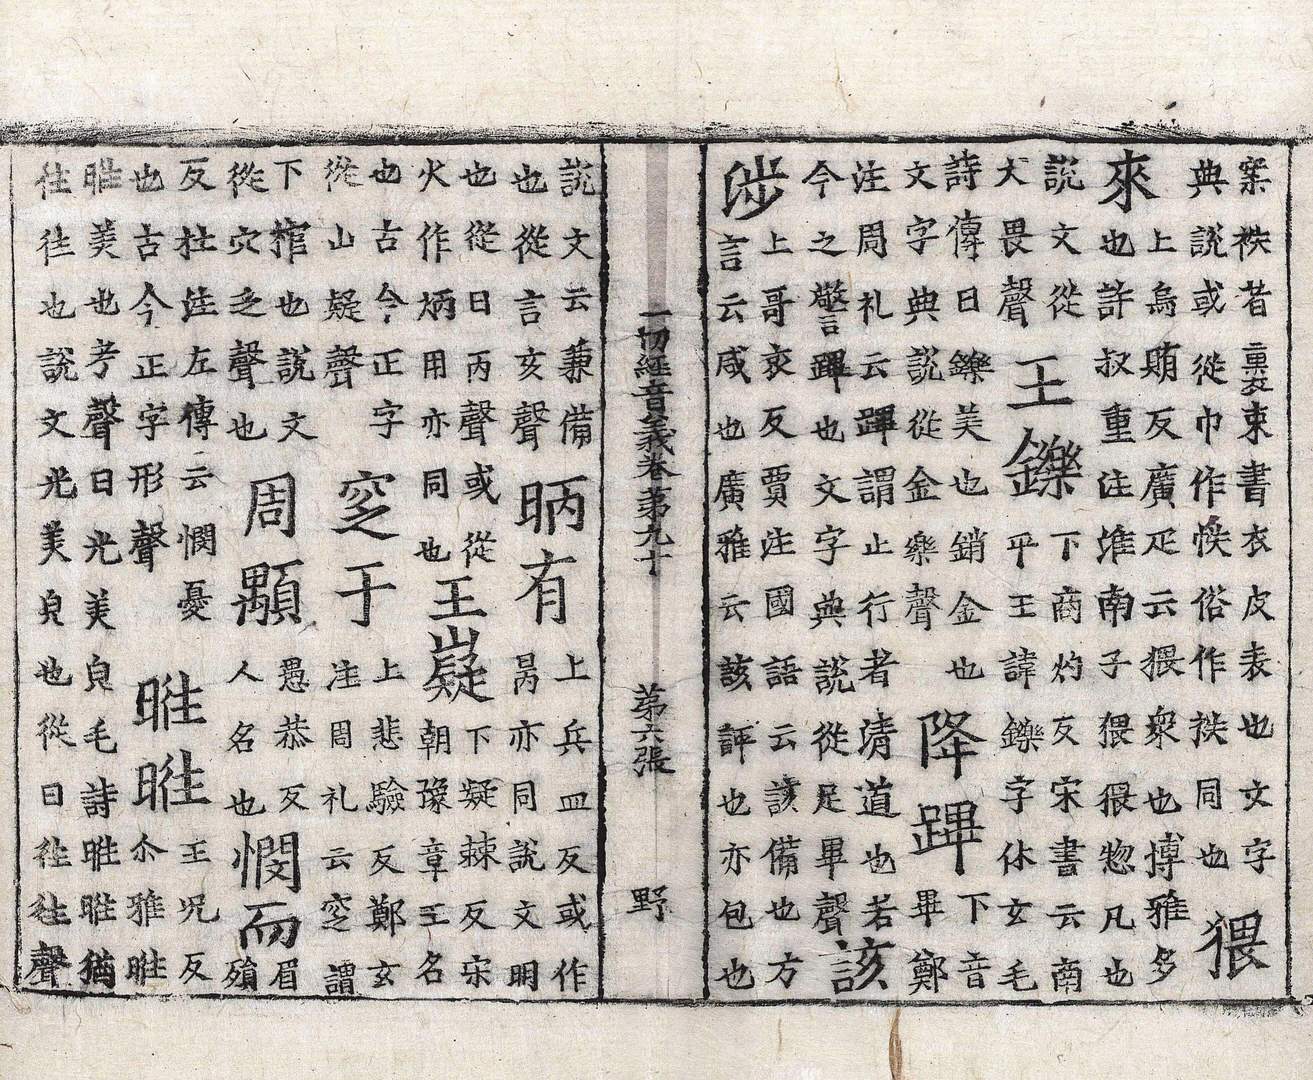 案袟者
束書衣皮表也文字
典說或從巾作帙俗作袟同也
猥
來
上烏賄反廣疋云猥眾也博雅多
也許叔重注淮南子猥猥惣凡也
說文從
犬畏聲
王鑠
下商灼反宋書云南
平王諱鑠字休玄毛
詩傳曰鑠美也銷金也
文字典說從金樂聲
降蹕
下音
畢鄭
注周礼云蹕謂止行者清道也若
今之警蹕也文字典說從足畢聲
該
涉
上哥亥反賈注國語云該備也方
言云咸也廣雅云該評也亦包也
一切經音義卷第九十 第六張 野
說文云兼備
也從言亥聲
昞有
上兵皿反或作
昺亦同說文明
也從日丙聲或從
火作炳用亦同也
王嶷
下疑棘反宋
朝豫章王名
也古今正字
從山疑聲
窆于
上悲驗反鄭玄
注周礼云窆謂
下棺也說文
從穴乏聲也
周顒
愚恭反
人名也
憫而
眉
殞
反杜注左傳云憫憂
也古今正字形聲
暀暀
王況反
尒雅暀
暀美也考聲曰光美皃毛詩暀暀猶
往往也說文光美皃也從日往往聲